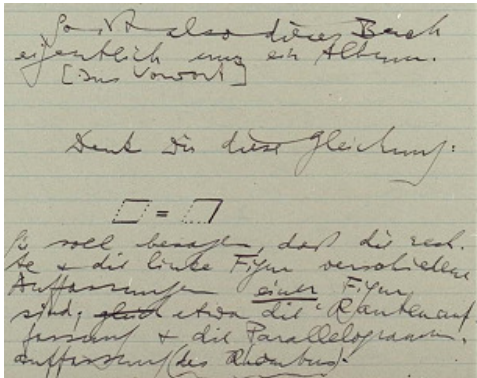 So ist also dieses Buch
eigentlich nur ein Album.
[Ins Vorwort]
Denk Dir diese Gleichung:
=
Sie soll besagen, daß die rech-
te & die linke Figur verschiedene
Auffassungen einer Figur
sind, etwa die Rautenauf-
fassung & die Parallelogramm-
auffassung (des Rhombus).